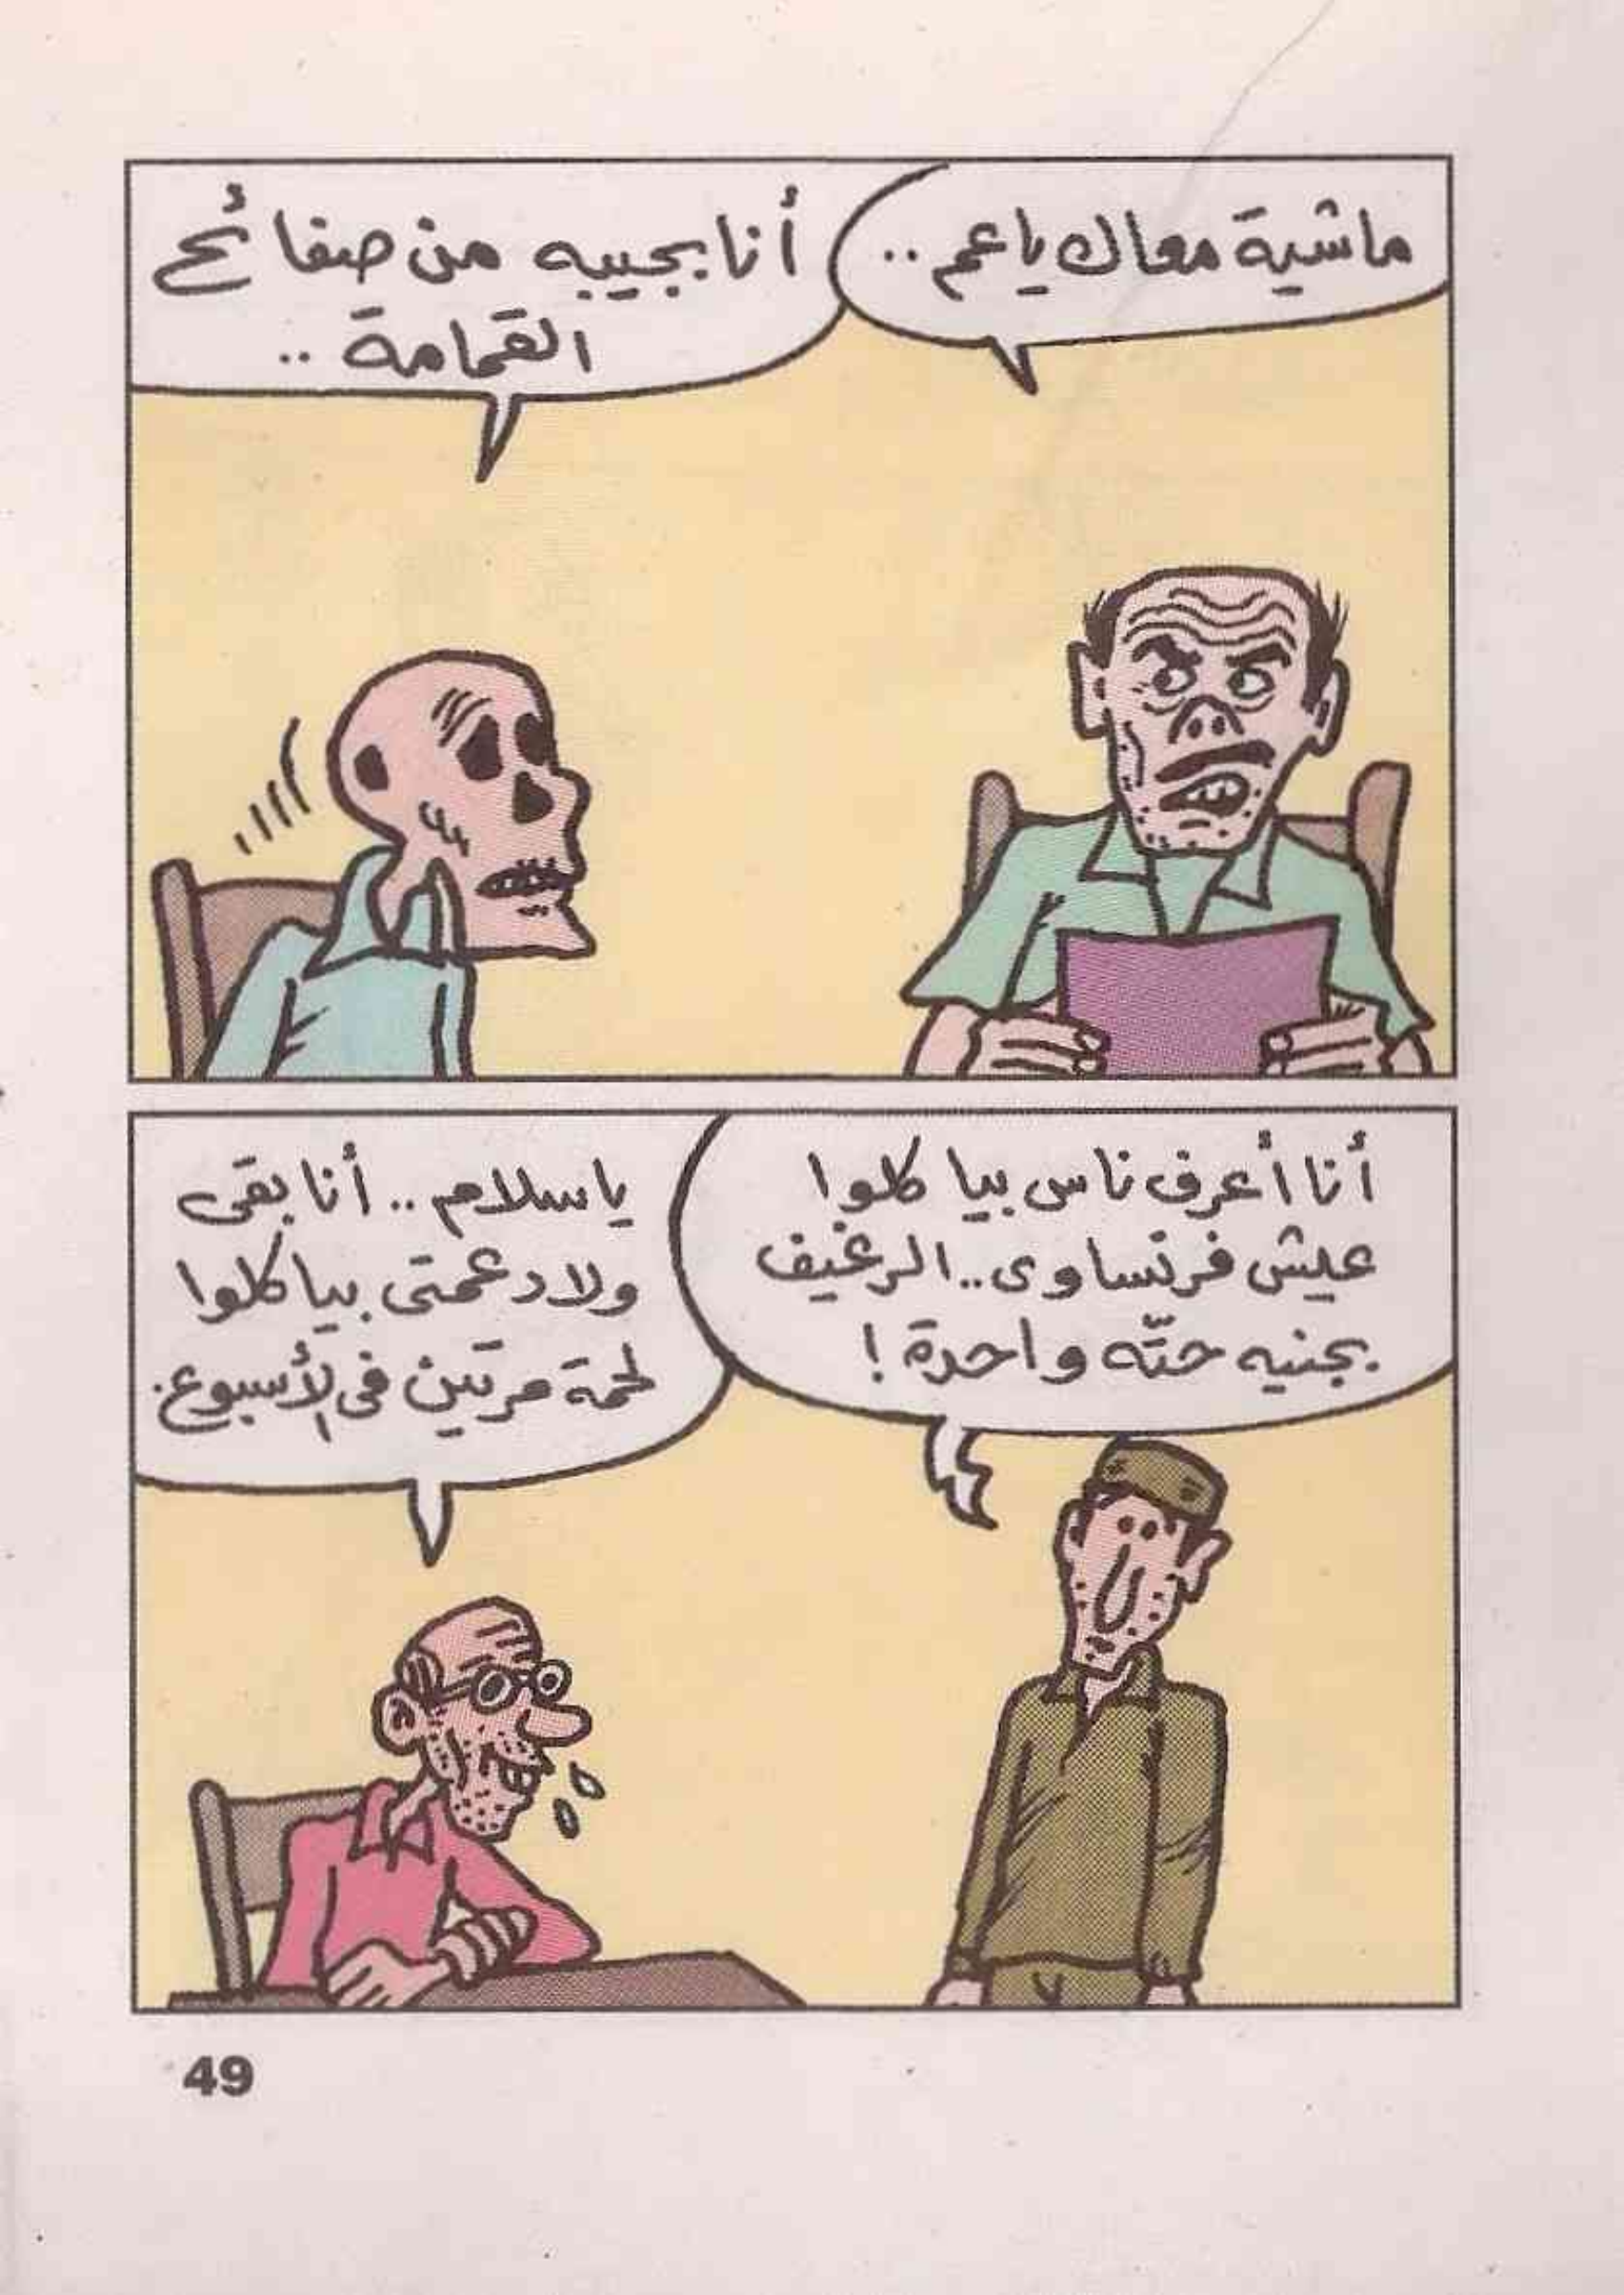 ماشية معاك ياعم..
أنا بجيبه من صفائح
القمامة ..
أنا أعرف ناس بيا كلوا
عيش فرنساوى.. الرغيف
بجنيه حتّه واحدة !
ياسلام .. أنا بقى
ولاد عمتى بيا كلوا
لحمة مرتين فى الأسبوع.
49